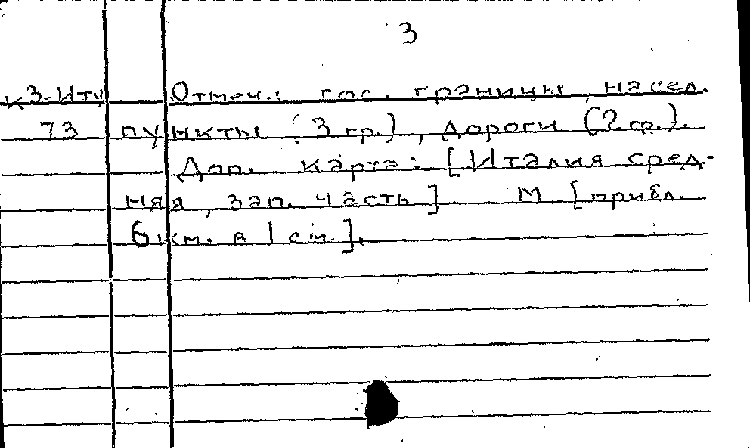 3
К3-Ит Отмеч.: гос. границы, насел.
73 пункты (3 гр.), дороги (2 гр.).
Доп. карта: [Италия сред-
няя, зап. часть] М [прибл.
6 км. в 1 см.].